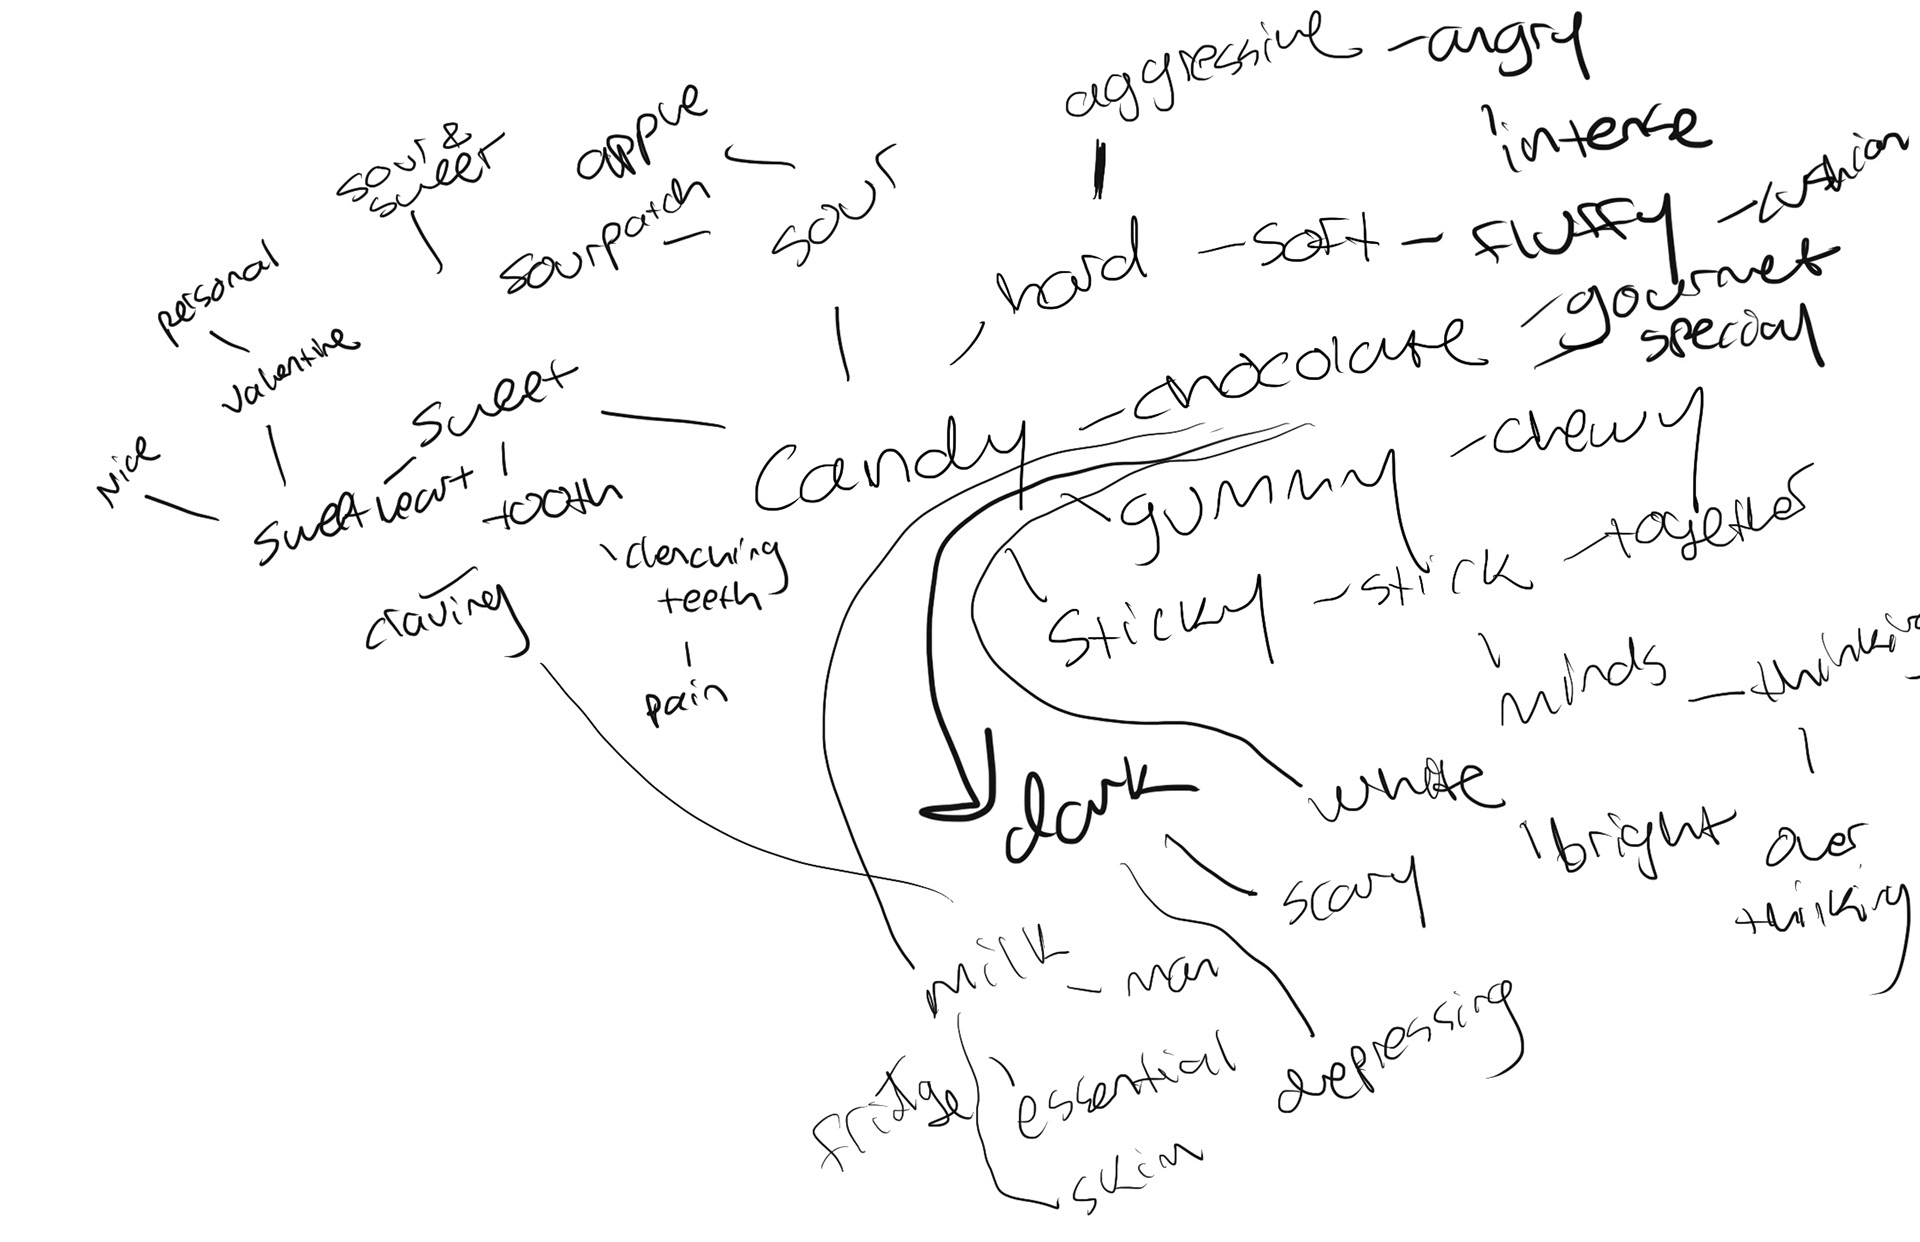 aggressive
angry
intense
sour &
sweet
apple
sourpatch
sour
hard
soft
fluffy
cushion
gourmet
special
chocolate
personal
valentine
sweet
nice
sweetheart
tooth
Candy
gummy
chewy
clenching
teeth
craving
pain
sticky
stick
together
minds
thinking
over
thinking
dark
white
bright
scary
milk
man
fridge
essential
depressing
skim